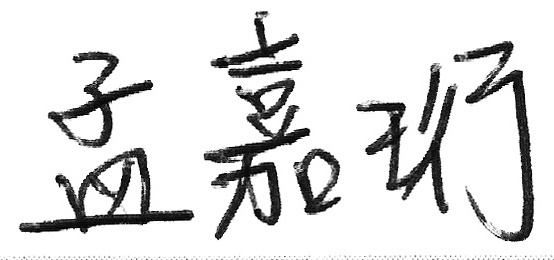 孟嘉珩